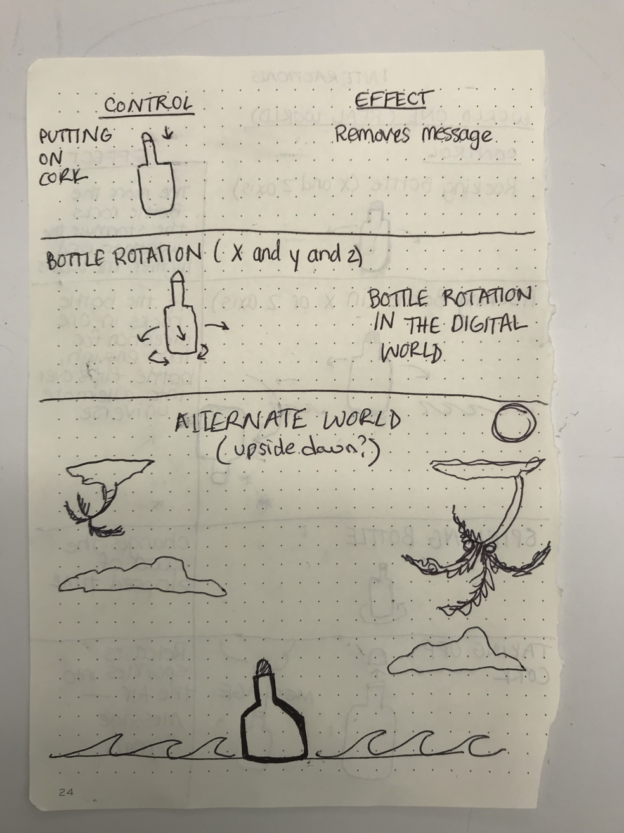 CONTROL
EFFECT
PUTTING
ON
CORK
Removes message
BOTTLE ROTATION (X and y and z)
BOTTLE ROTATION
IN THE DIGITAL
WORLD
ALTERNATE WORLD
(upside down?)
24